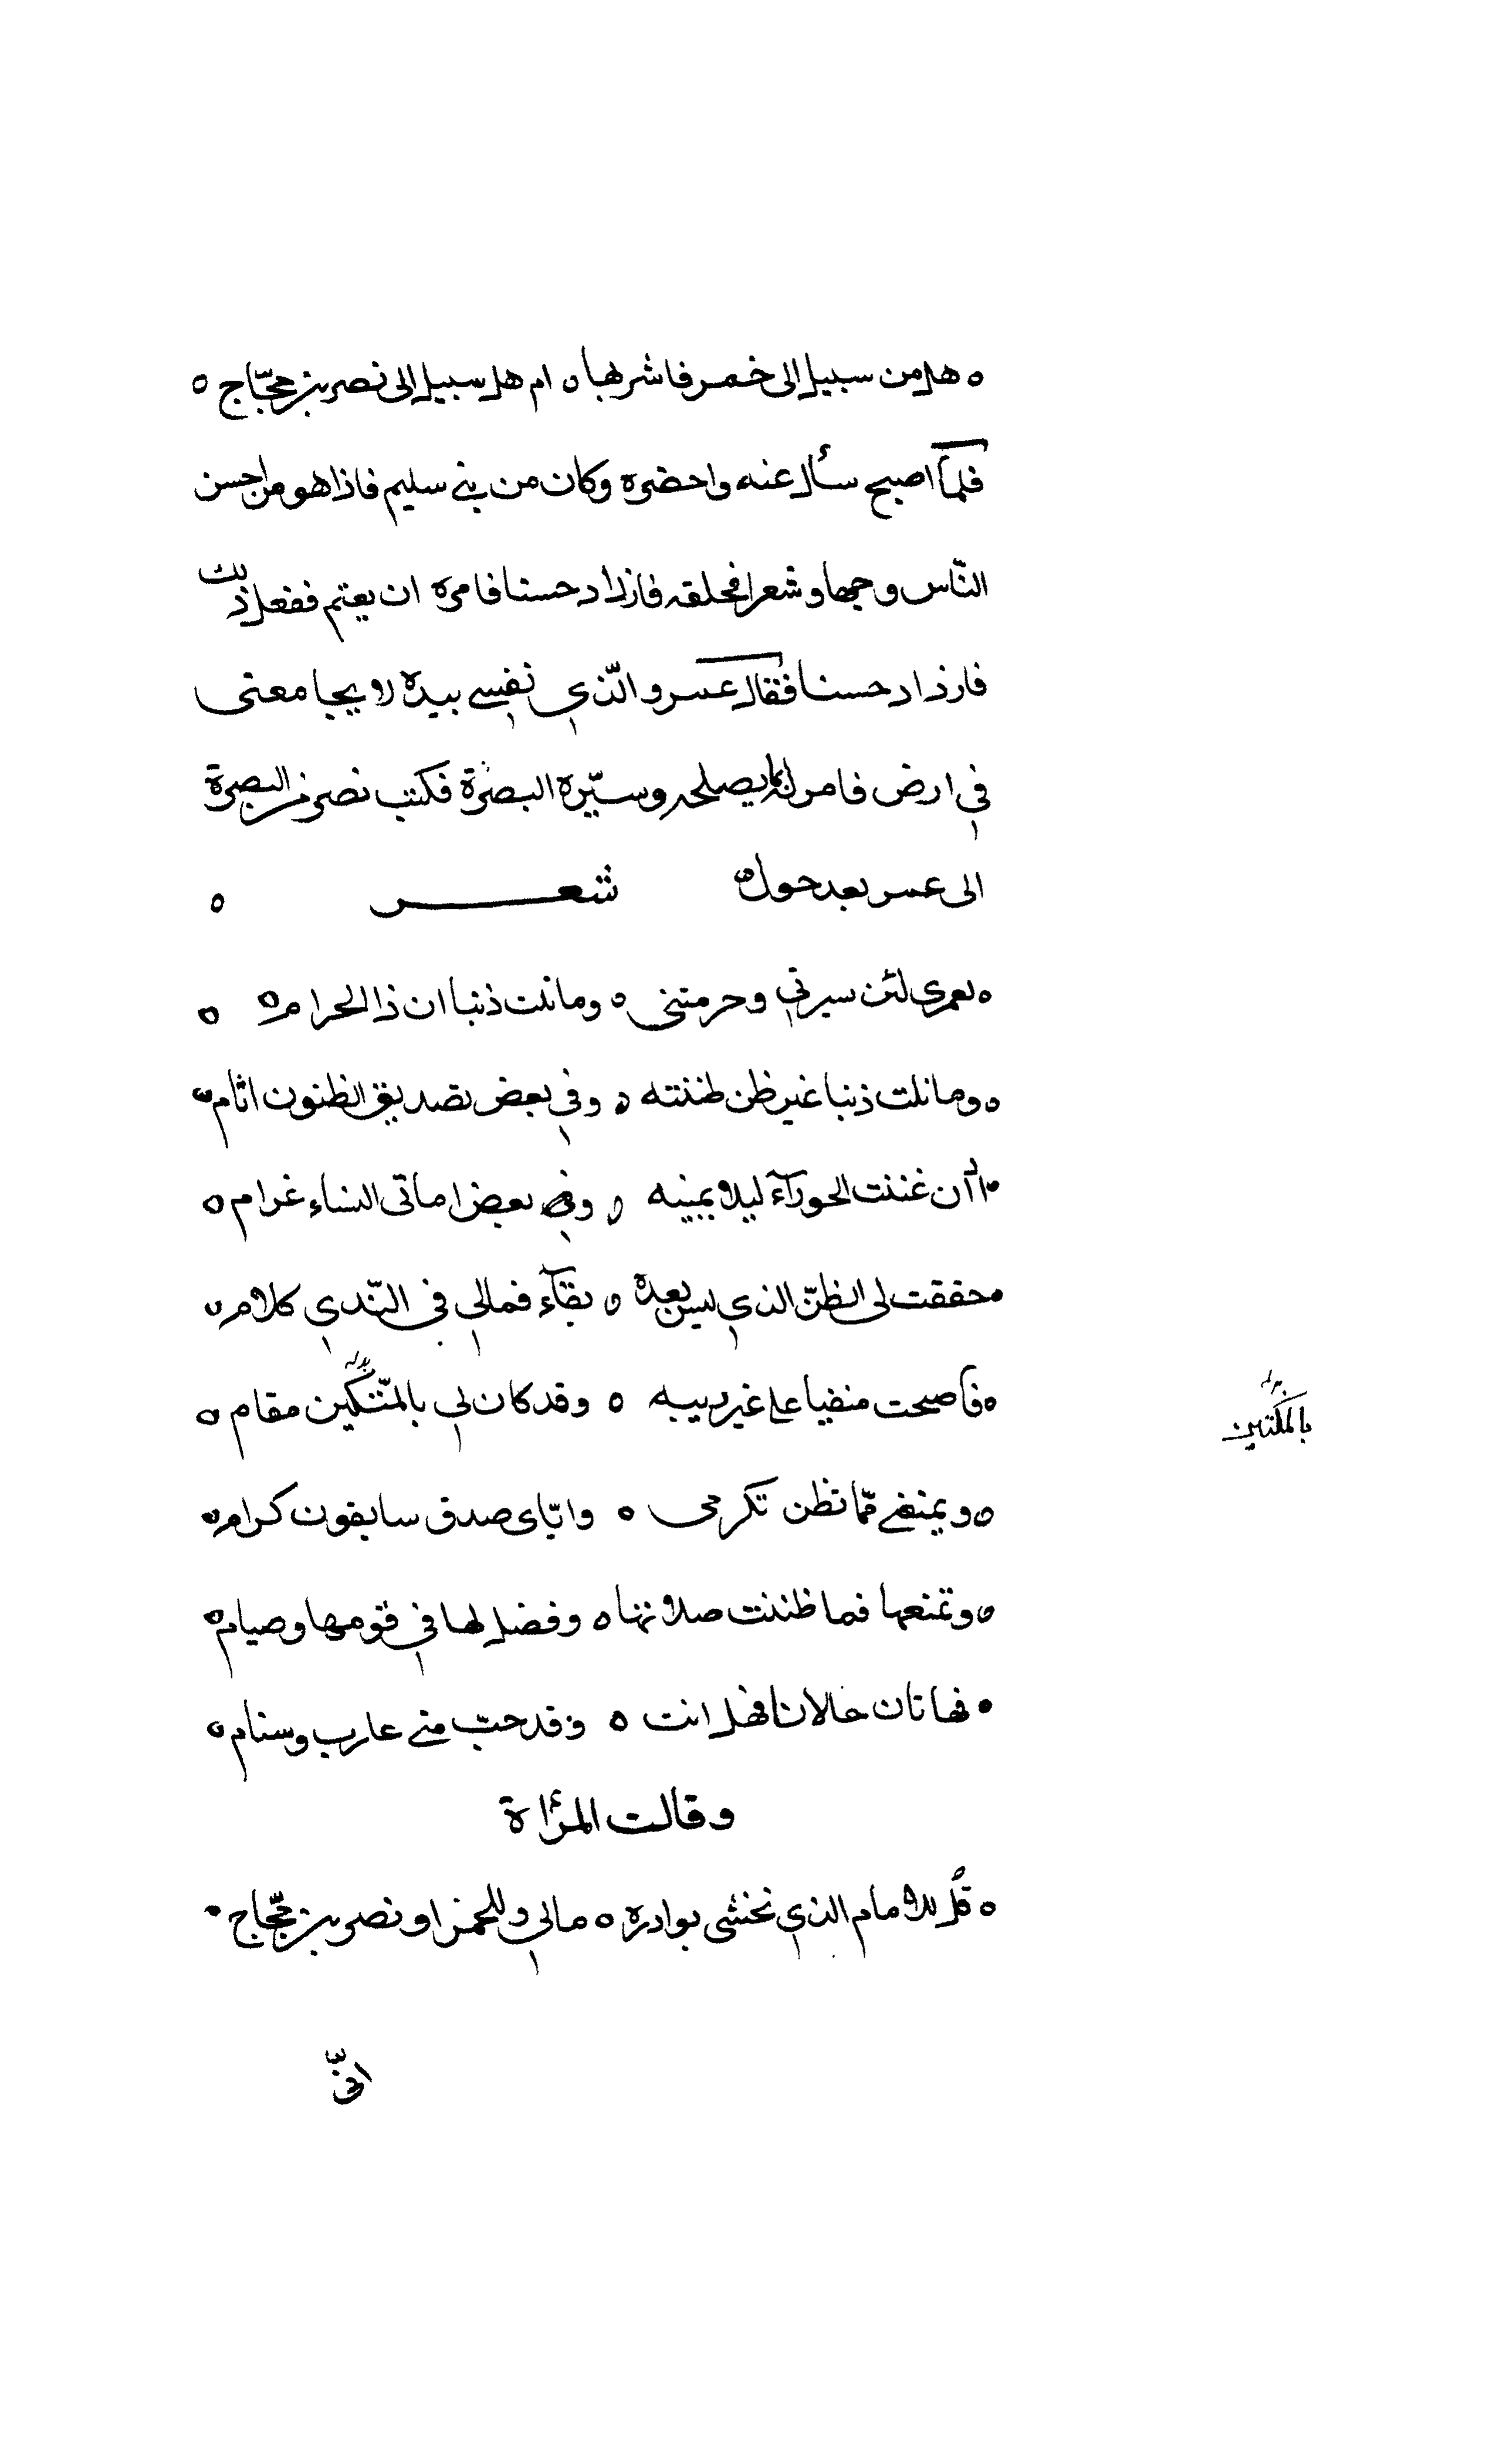 ه هل من سبيل الى خمر فاشربها ه ام هل سبيل الى نصر بن حجّاج ه
فلمّا اصبح سأل عنه واحضره وكان من بني سليم فاذا هو من احسن
النّاس وجها وشعرا فحلقه فازداد حسنا فامره ان يعتم ففعل ذلك
فازداد حسنا فقال عمر والّذي نفسي بيده لا يجامعنى
في ارض فامر له بما يصلحه وسيّره البصرة فكتب نصر من البصرة
الى عمر بعد حول ه شعر ه
ه لعمري لئن سيرتني وحرمتنى ه وما نلت ذنبا ان ذا لحرام ه ه
ه وما نلت ذنبا غير ظن ظننته ه وفي بعض تصديق الظنون اثام ه
أان غنت الحورآء ليلا بمنيه ه وفي بعض امانى النساء غرام ه
حققت لى الظنّ الذي ليس بعده ه بقآء فمالي في النّدي كلام ه
ه فأصبحت منفيا على غير ريبه ه وقد كان لي بالمتّكين مقام ه
بالمكتين
ه ويمنعني ممّا تظن تكرمى ه وابّاى صدق سابقون كرام ه
ه وتمنعها فما ظننت صلاتها ه وفضل لها في قومها وصيام ه
فهاتان حالانا فهل انت ه وقد حبّ مني عارب وسنام ه
وقالت المرأة
ه قل للامام الذي نخشى بوادره ه مالي وللخمر او نصر بن حجّاج
انّى